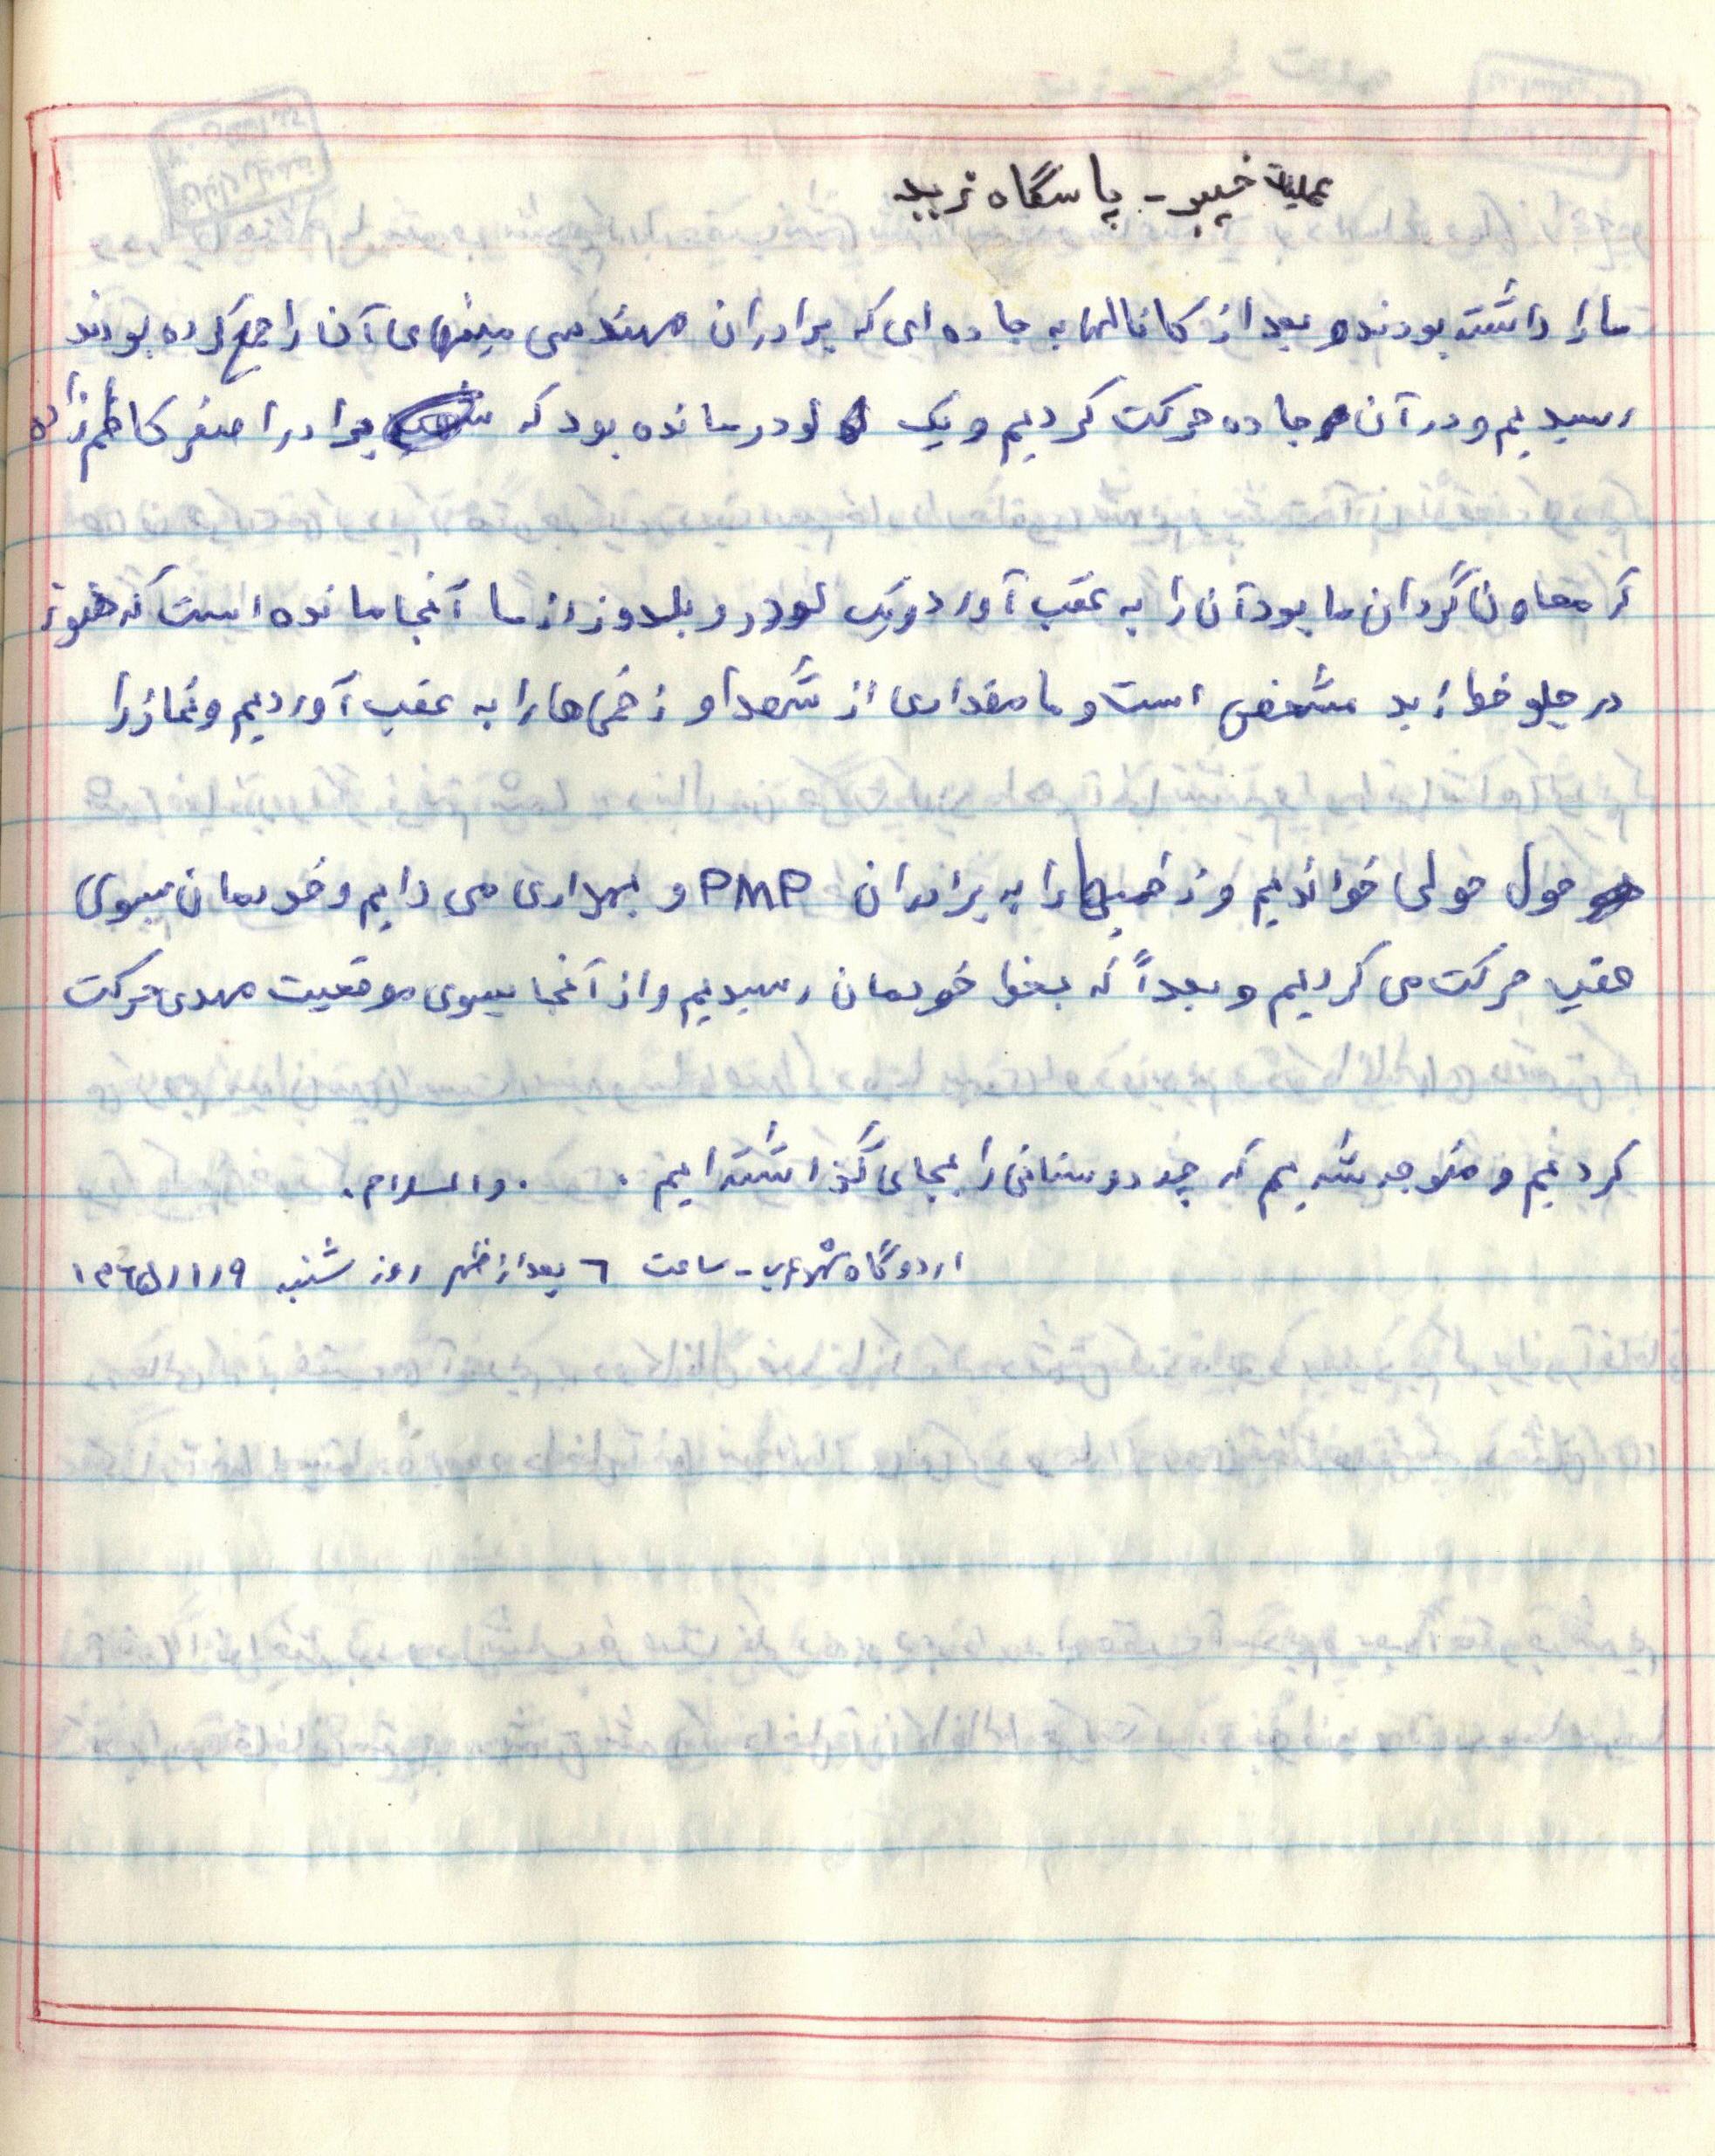 عملیات خیبر - پاسگاه زید
ما را داشته بودند و بعد از کانالها به جاده ای که برادران مهندسی مینهای آن را جمع کرده بودند
رسیدیم و در آن جاده حرکت کردیم و یک لودر مانده بود که برادر اصغر کاظم زاده
که معاون گردان ما بود آن را به عقب آورد و یک لودر و بلدوزر از ما آنجا مانده است که هنوز
در جلو خط زید مشخص است و ما مقداری از شهدا و زخمی ها را به عقب آوردیم و نماز را
هول هولی خواندیم و زخمیها را به برادران PMP و بهداری می دادیم و خودمان بسوی
عقب حرکت می کردیم و بعداً که بخط خودمان رسیدیم و از آنجا بسوی موقعیت مهدی حرکت
کردیم و متوجه شدیم که چه دوستانی را بجای گذاشته ایم . والسلام.
اردوگاه - ساعت ٦ بعد از ظهر روز شنبه ١٣٦٥/١/٩